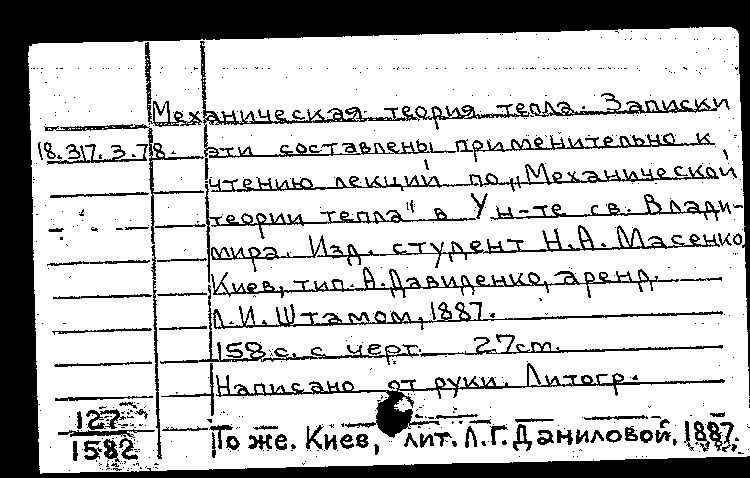 Механическая теория тепла. Записки
18.317.3.78. эти составлены применительно к
чтению лекций по „Механической
теории тепла" в Ун-те св. Влади-
мира. Изд. студент Н.А. Масенко
Киев, тип. А.Давиденко, аренд.
Л.И. Штамом, 1887.
158 с. с черт. 27 cm.
Написано от руки. Литогр.
127
1582
То же. Киев, лит. Л.Г. Даниловой, 1887.